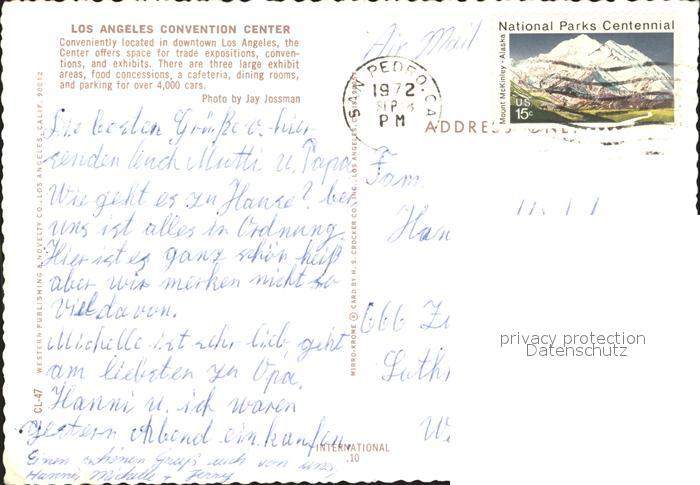 LOS ANGELES CONVENTION CENTER
Conveniently located in downtown Los Angeles, the
Center offers space for trade expositions, conven-
tions, and exhibits. There are three large exhibit
areas, food concessions, a cafeteria, dining rooms,
and parking for over 4,000 cars.
Photo by Jay Jossman
Die besten Grüße v. hier
senden Euch Mutti u. Papa
Wie geht es zu Hause? bei
uns ist alles in Ordnung.
Hier ist es ganz schön heiß
aber wir merken nicht so
viel davon.
Michelle ist sehr lieb, geht
am liebsten zu Opa.
Hanni u. ich waren
gestern Abend einkaufen.
Einen schönen Gruß auch von uns,
Hanni, Michelle + Jerry
CL-47
WESTERN PUBLISHING & NOVELTY CO., LOS ANGELES, CALIF. 90012
MIRRO-KROME ® CARD BY H. S. CROCKER CO., INC., LOS ANGELES, CALIF.
Air Mail
SAN PEDRO, CA
1972
SEP
PM
National Parks Centennial
Mount McKinley · Alaska
U.S.
15c
ADDRESS ONLY
Fam.
Han
666
privacy protection
Datenschutz
W
INTERNATIONAL
.10